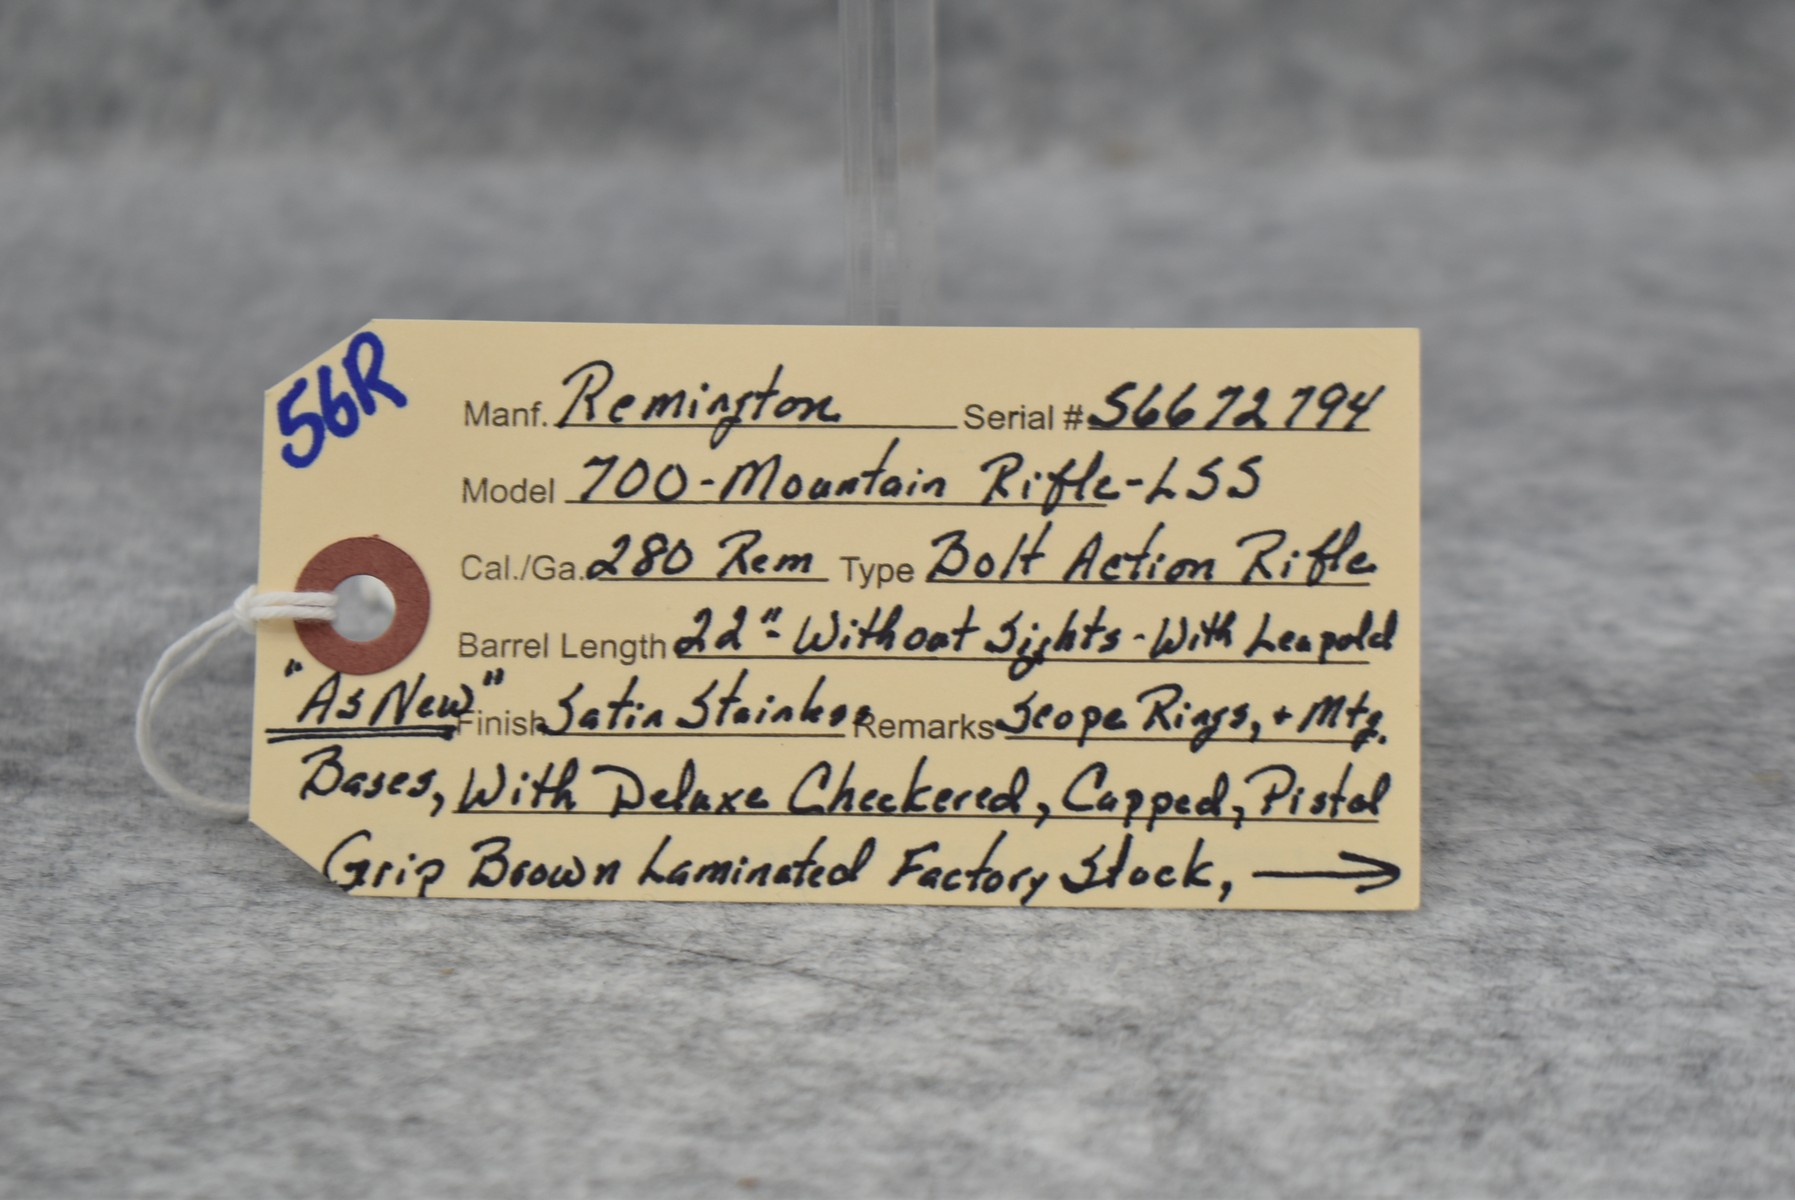 56R
Manf. Remington Serial # S6672794
Model 700-Mountain Rifle-LSS
Cal./Ga. 280 Rem Type Bolt Action Rifle
Barrel Length 22"- Without Sights - With Leupold
"As New" Finish Satin Stainless Remarks Scope Rings, + Mtg.
Bases, With Deluxe Checkered, Capped, Pistol
Grip Brown Laminated Factory Stock, →